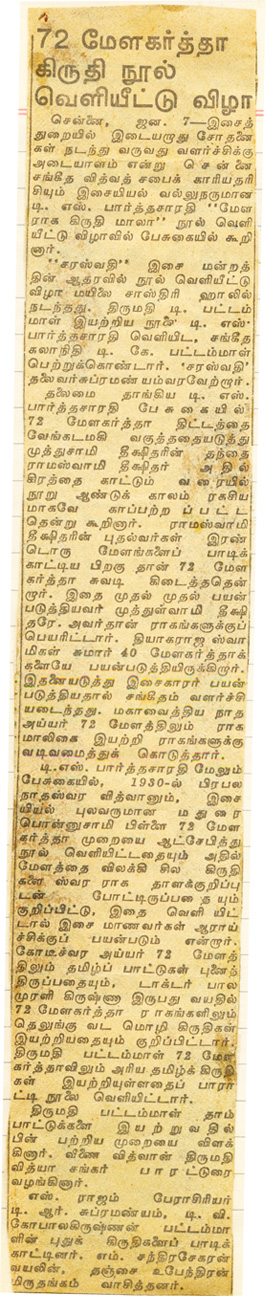 72 மேளகர்த்தா
கிருதி நூல்
வெளியீட்டு விழா
சென்னை, ஜன. 7—இசைத்
துறையில் இடையறாது சோதனை
கள் நடந்து வருவது வளர்ச்சிக்கு
அடையாளம் என்று சென்னை
சங்கீத வித்வத் சபைக் காரியதரி
சியும் இசையியல் வல்லுநருமான
டி. எஸ். பார்த்தசாரதி "மேள
ராக கிருதி மாலா" நூல் வெளி
யீட்டு விழாவில் பேசுகையில் கூறி
னார்.
"சரஸ்வதி" இசை மன்றத்
தின் ஆதரவில் நூல் வெளியீட்டு
விழா மயிலை சாஸ்திரி ஹாலில்
நடந்தது. திருமதி டி. பட்டம்
மாள் இயற்றிய நூலை டி. எஸ்.
பார்த்தசாரதி வெளியிட, சங்கீத
கலாநிதி டி. கே. பட்டம்மாள்
பெற்றுக்கொண்டார். 'சரஸ்வதி'
தலைவர்சுப்ரமண்யம்வரவேற்றார்.
தலைமை தாங்கிய டி. எஸ்.
பார்த்தசாரதி பேசுகையில்
72 மேளகர்த்தா திட்டத்தை
வேங்கடமகி வகுத்ததையடுத்து
முத்துசாமி தீக்ஷிதரின் தந்தை
ராமஸ்வாமி தீக்ஷிதர் அதில்
கிரந்தை காட்டும் வரையில்
நூறு ஆண்டுக் காலம் ரகசிய
மாகவே காப்பாற்றப்பட்ட
தென்று கூறினார். ராமஸ்வாமி
தீக்ஷிதரின் புதல்வர்கள் இரண்
டொரு மேளங்களைப் பாடிக்
காட்டிய பிறகு தான் 72 மேள
கர்த்தா சுவடி கிடைத்ததென்
றார். இதை முதல் முதல் பயன்
படுத்தியவர் முத்துஸ்வாமி தீக்ஷி
தரே. அவர்தான் ராகங்களுக்குப்
பெயரிட்டார். தியாகராஜ ஸ்வா
மிகள் சுமார் 40 மேளகர்த்தாக்
களையே பயன்படுத்தியிருக்கிறார்.
இதனையடுத்து இசைகாரர் பயன்
படுத்தியதால் சங்கீதம் வளர்ச்சி
யடைந்தது. மகாவைத்திய நாத
அய்யர் 72 மேளத்திலும் ராக
மாலிகை இயற்றி ராகங்களுக்கு
வடிவமைத்துக் கொடுத்தார்.
டி.எஸ். பார்த்தசாரதி மேலும்
பேசுகையில், 1930-ல் பிரபல
நாதஸ்வர வித்வானும், இசை
யியல் புலவருமான மதுரை
பொன்னுசாமி பிள்ளை 72 மேள
கர்த்தா முறையை ஆட்சேபித்து
நூல் வெளியிட்டதையும் அதில்
மேளத்தை விலக்கி சில கிருதி
களை ஸ்வர ராக தாளக்குறிப்பு
டன் போட்டிருப்பதையும்
குறிப்பிட்டு, இதை வெளியிட்
டால் இசை மாணவர்கள் ஆராய்
ச்சிக்குப் பயன்படும் என்றார்.
கோடீச்வர அய்யர் 72 மேளத்
திலும் தமிழ்ப் பாட்டுகள் புனைந்
திருப்பதையும், டாக்டர் பால
முரளி கிருஷ்ணா இருபது வயதில்
72 மேளகர்த்தா ராகங்களிலும்
தெலுங்கு வட மொழி கிருதிகள்
இயற்றியதையும் குறிப்பிட்டார்.
திருமதி பட்டம்மாள் 72 மேள
கர்த்தாவிலும் அரிய தமிழ்க் கிருதி
கள் இயற்றியுள்ளதைப் பாரா
ட்டி நூலை வெளியிட்டார்.
திருமதி பட்டம்மாள் தாம்
பாட்டுக்களை இயற்றுவதில்
பின் பற்றிய முறையை விளக்
கினார். வீணை வித்வான் திருமதி
வித்யா சங்கர் பாராட்டுரை
வழங்கினார்.
எஸ். ராஜம் பேராசிரியர்
டி. ஆர். சுப்ரமண்யம், டி. வி.
கோபாலகிருஷ்ணன் பட்டம்மா
ளின் புதுக் கிருதிகளைப் பாடிக்
காட்டினர். எம். சந்திரசேகரன்
வயலின், தஞ்சை உபேந்திரன்
மிருதங்கம் வாசித்தனர்.